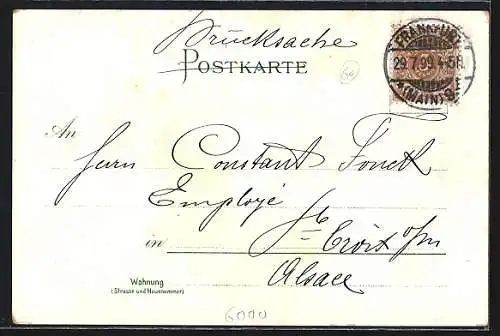 Drucksache
POSTKARTE
FRANKFURT
29.7.99. 4-5N.
*(MAIN) 9.
An
Herrn Constant Fonck
Employé
in Ste Croix a/m
Alsace
Wohnung
(Strasse und Hausnummer)
6000